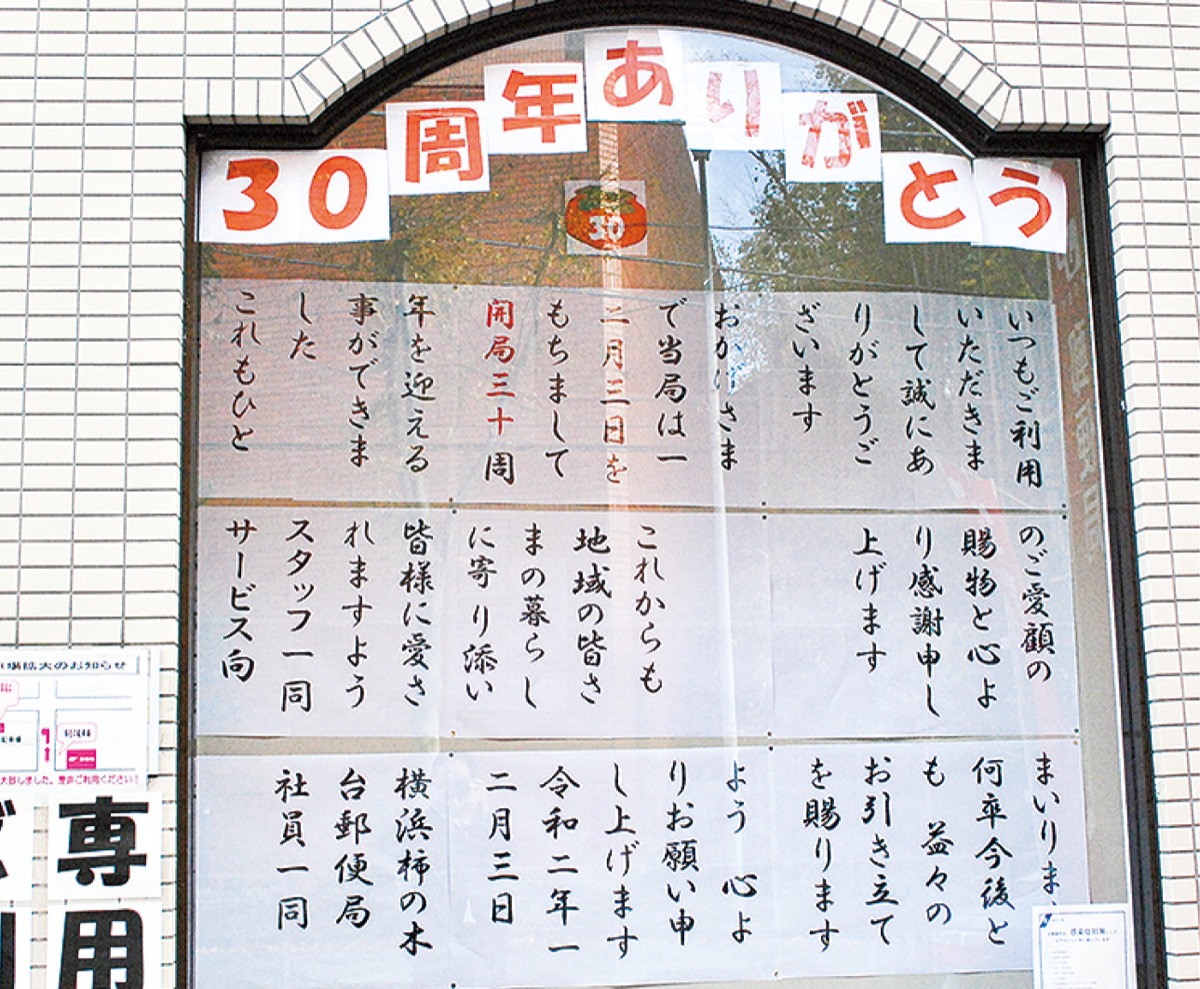 30周年ありがとう
30
いつもご利用
いただきま
して誠にあ
りがとうご
ざいます
おかげさま
で当局は一
二月三日を
もちまして
開局三十周
年を迎える
事ができま
した
これもひと
のご愛顧の
賜物と心よ
り感謝申し
上げます
これからも
地域の皆さ
まの暮らし
に寄り添い
皆様に愛さ
れますよう
スタッフ一同
サービス向
まいりま
何卒今後と
も 益々の
お引き立て
を賜ります
よう 心よ
りお願い申
し上げます
令和二年一
二月三日
横浜柿の木
台郵便局
社員一同
場拡大のお知らせ
大致しました。是非ご利用ください!
専用